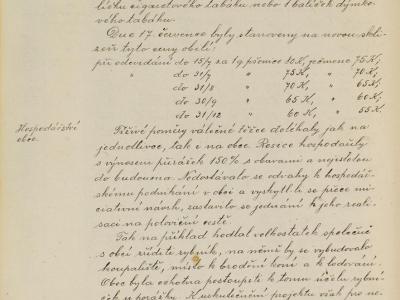 lístku cigaretového tabáku nebo 1 balíček dýmko-
vého tabáku.
Dne 17. července byly stanoveny na novou skli-
zeň tyto ceny obilí:
při odevzdání do 15/7 za 1q pšenice 80 K, ječmene 75 K,
" do 31/7 75 K, " 70 K,
do 31/8 " 70 K, " 65 K,
do 30/9 " 65 K, " 60 K,
do 31/12 " 60 K, " 55 K.
Hospodářství
obce.
Tíživé poměry válečné těžce doléhaly jak na
jednotlivce, tak i na obce. Rosice hospodařily
s výnosem přirážek 150% s obavami a nejistotou
do budoucna. Nedostávalo se odvahy k hospodář-
skému podnikání v obci a vyskytl-li se přece ini-
ciativní návrh, zastavilo se jednání k jeho reali-
saci na poloviční cestě.
Tak na příklad hodlal velkostatek společně
s obcí zříditi rybník, na němž by se vybudovalo
koupaliště, místo k brodění koní a k ledování.
Obec byla ochotna postoupiti k tomu účelu rybní-
ček u porážky. K uskutečnění projektu však pro ne-